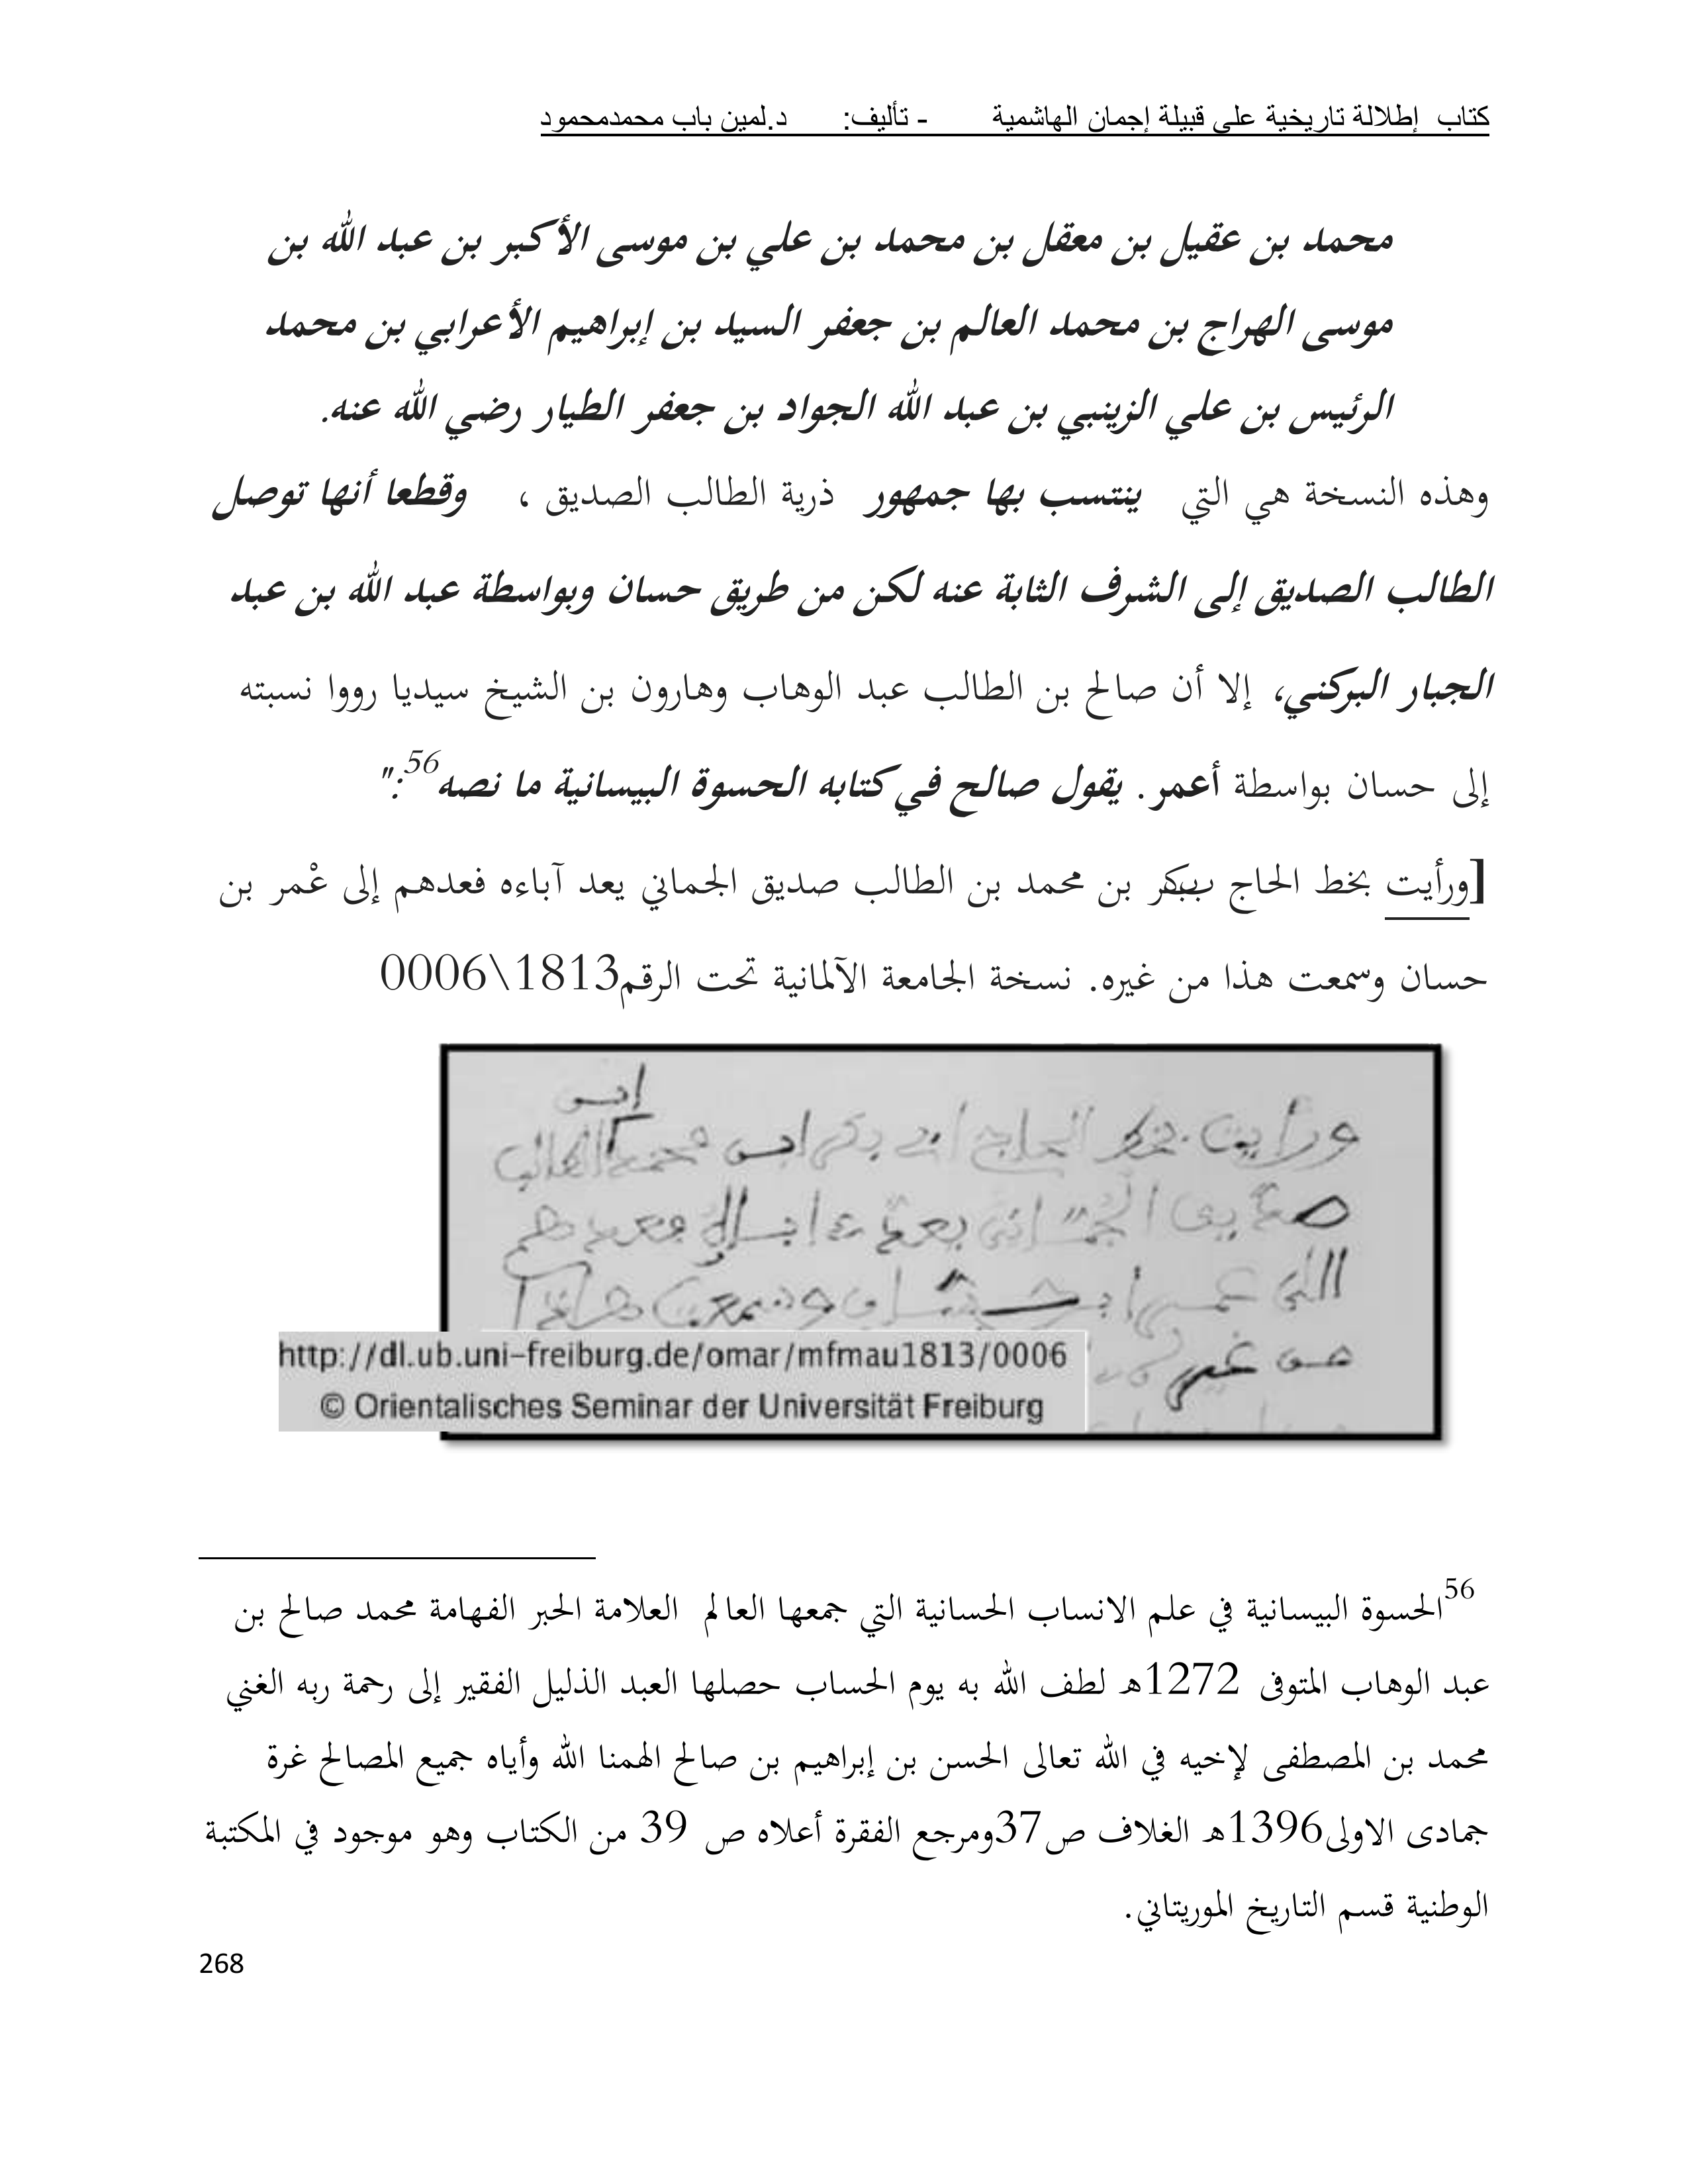 كتاب إطلالة تاريخية على قبيلة إجمان الهاشمية - تأليف: د.لمين باب محمدمحمود
محمد بن عقيل بن معقل بن محمد بن علي بن موسى الأكبر بن عبد الله بن
موسى الهراج بن محمد العالم بن جعفر السيد بن إبراهيم الأعرابي بن محمد
الرئيس بن علي الزينبي بن عبد الله الجواد بن جعفر الطيار رضي الله عنه.
وهذه النسخة هي التي ينتسب بها جمهور ذرية الطالب الصديق ، وقطعا أنها توصل
الطالب الصديق إلى الشرف الثابة عنه لكن من طريق حسان وبواسطة عبد الله بن عبد
الجبار البركني، إلا أن صالح بن الطالب عبد الوهاب وهارون بن الشيخ سيديا رووا نسبته
إلى حسان بواسطة أعمر. يقول صالح في كتابه الحسوة البيسانية ما نصه56:"
[ورأيت بخط الحاج ببكر بن محمد بن الطالب صديق الجماني يعد آباءه فعدهم إلى عْمر بن
حسان وسمعت هذا من غيره. نسخة الجامعة الآلمانية تحت الرقم1813\0006
ابن
ورأيت بخط الحاج ابي بكر ابن محمد الطالب
صديق الجماني يعد ءاباءه فعدهم
الى عمر ابن حسان وسمعت هاذا
من غيره
http://dl.ub.uni-freiburg.de/omar/mfmau1813/0006
© Orientalisches Seminar der Universität Freiburg
56الحسوة البيسانية في علم الانساب الحسانية التي جمعها العالم العلامة الحبر الفهامة محمد صالح بن
عبد الوهاب المتوفى 1272هـ لطف الله به يوم الحساب حصلها العبد الذليل الفقير إلى رحمة ربه الغني
محمد بن المصطفى لإخيه في الله تعالى الحسن بن إبراهيم بن صالح الهمنا الله وأياه جميع المصالح غرة
جمادى الاولى1396هـ الغلاف ص37ومرجع الفقرة أعلاه ص 39 من الكتاب وهو موجود في المكتبة
الوطنية قسم التاريخ الموريتاني.
268